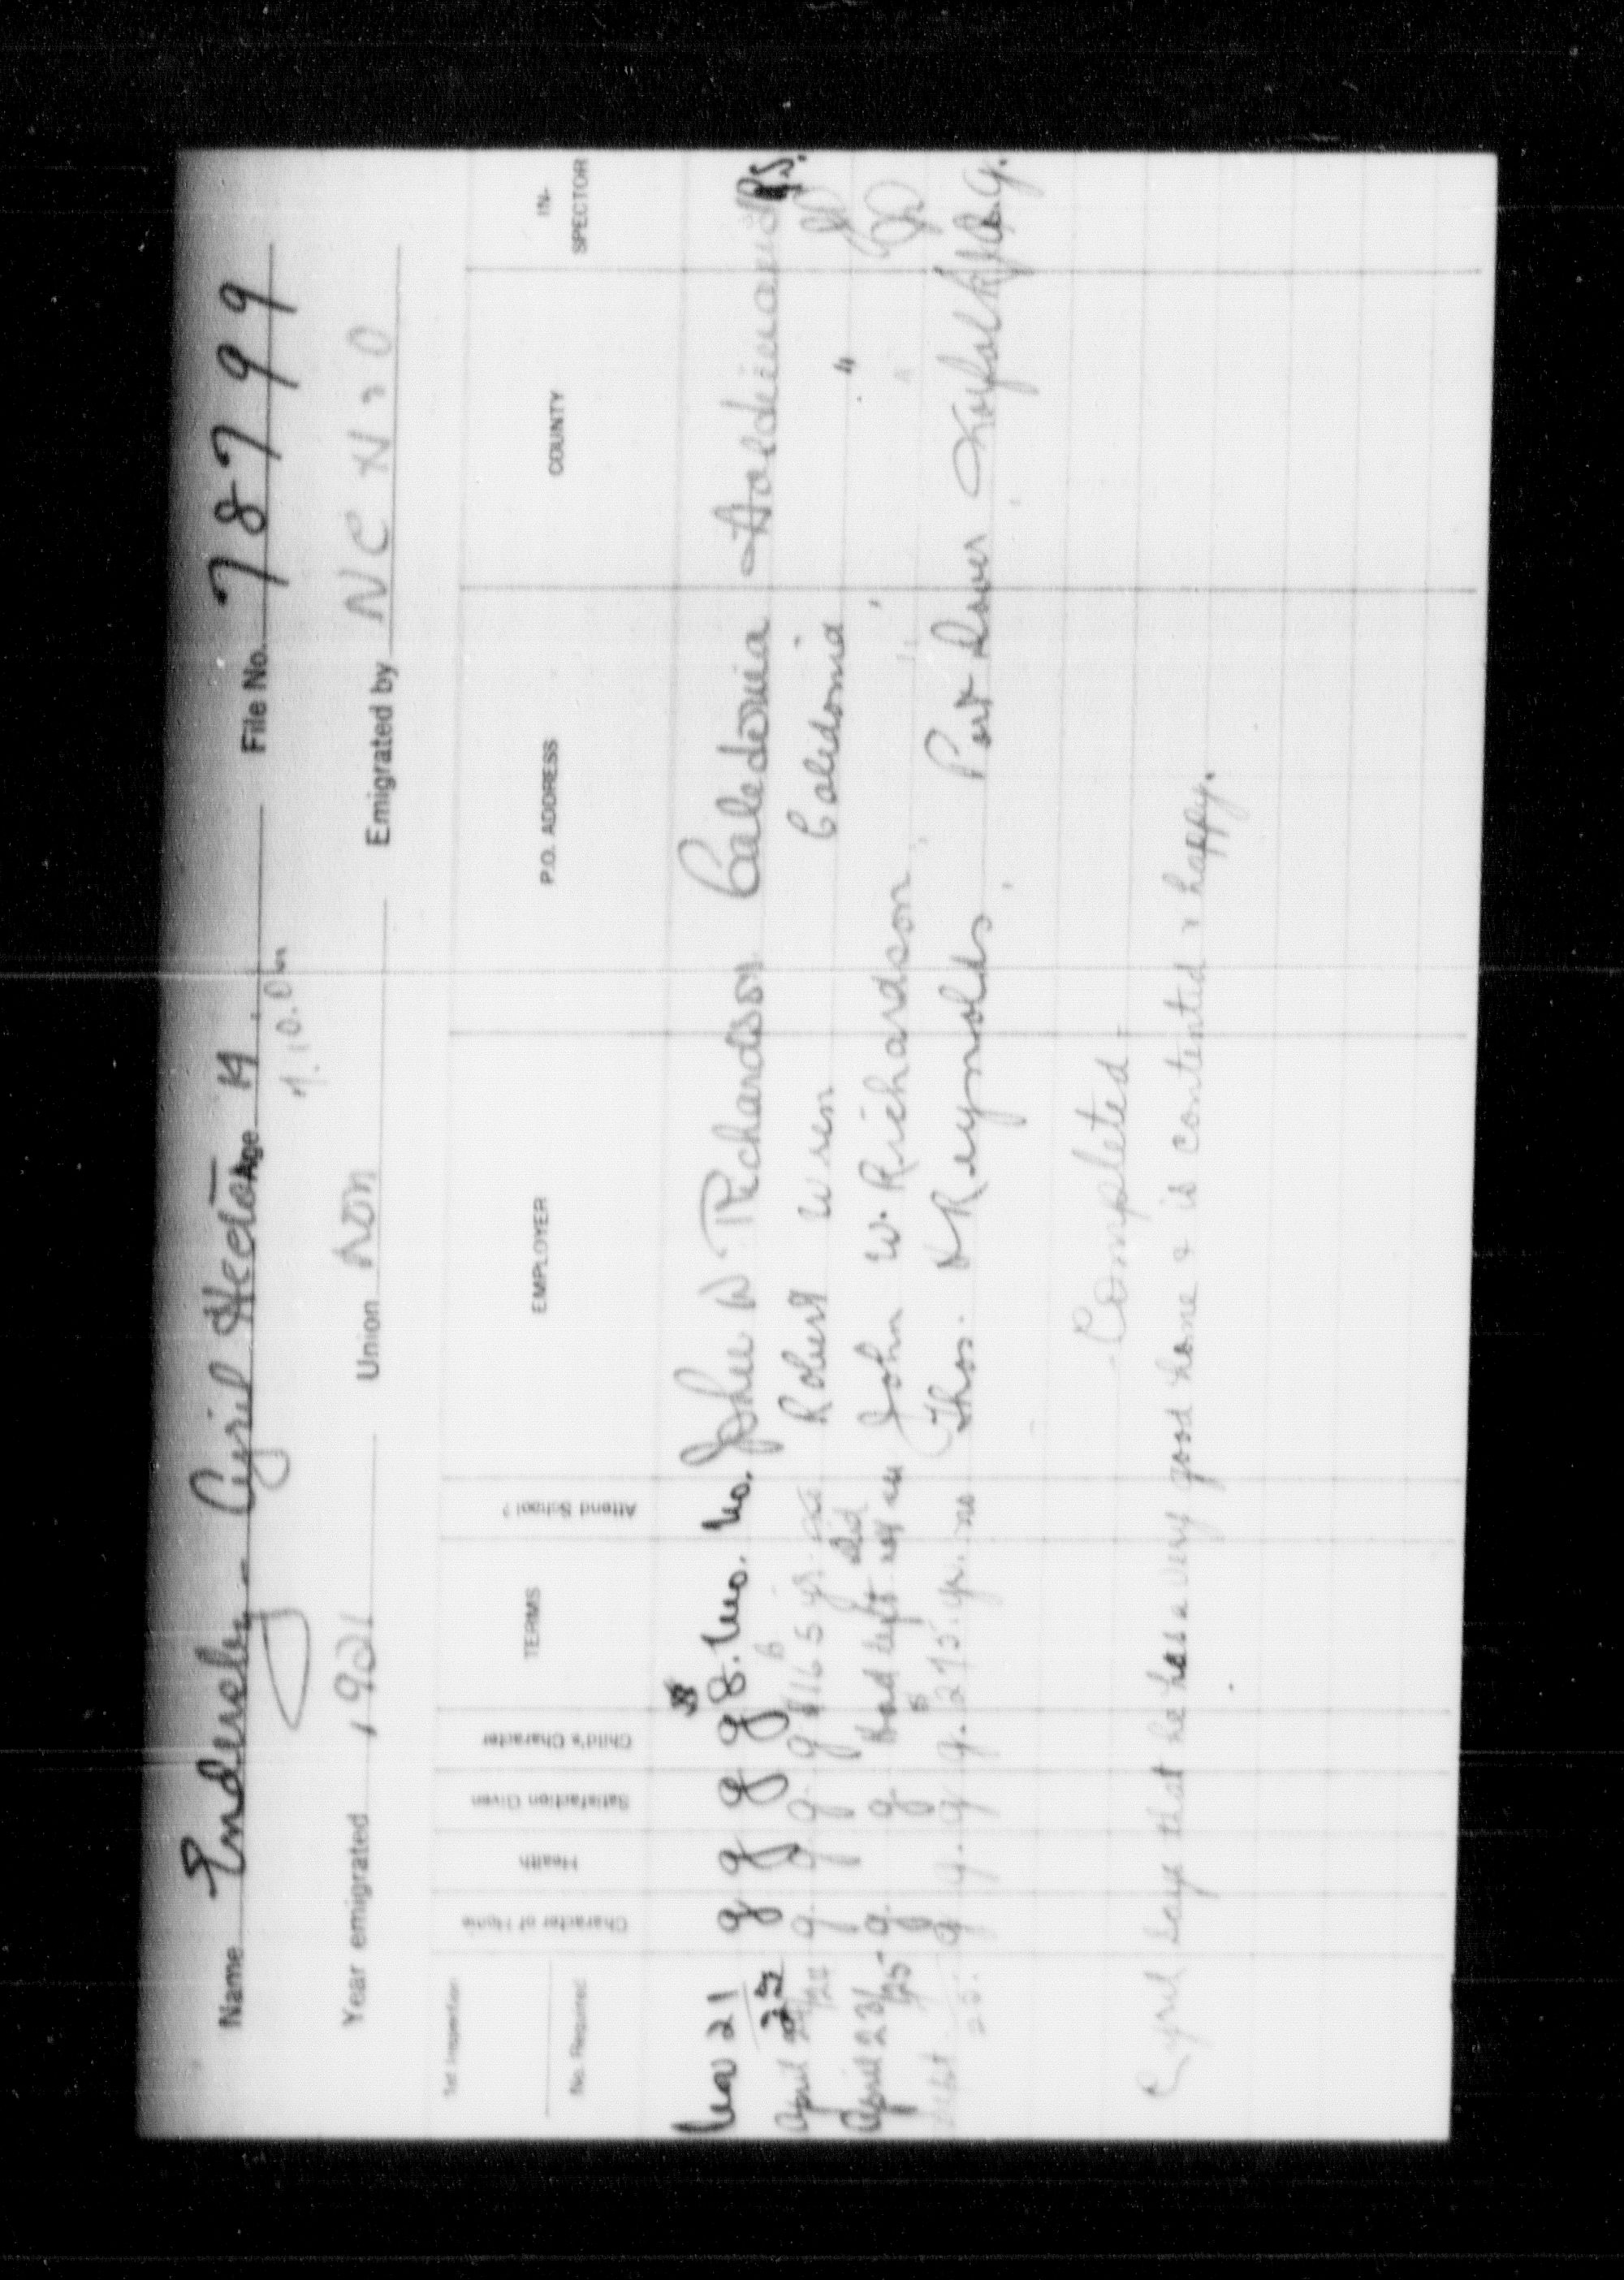 Name Enderely - Cyril Hector Age 14 File No. 78799
7.10.05
Year emigrated 1921 Union Non Emigrated by N C H & O
1st Inspection
No. Required
Character of Home
Health
Satisfaction Given
Child's Character
TERMS
Attend School?
EMPLOYER
P.O. ADDRESS
COUNTY
IN-SPECTOR
Nov 21 g g g g 8. mo. no. John W Richardson Caledonia Haldimand
April g g g g $165 yr. Robert Wren Caledonia "
April 23/25 g. g Had left Did not see John W. Richardson " " "
Sept. 25. g g. g g. 275. yr. no Thos. Reynolds. Port Dover Norfolk
Completed.
Cyril says that he has a very good home & is contented & happy.